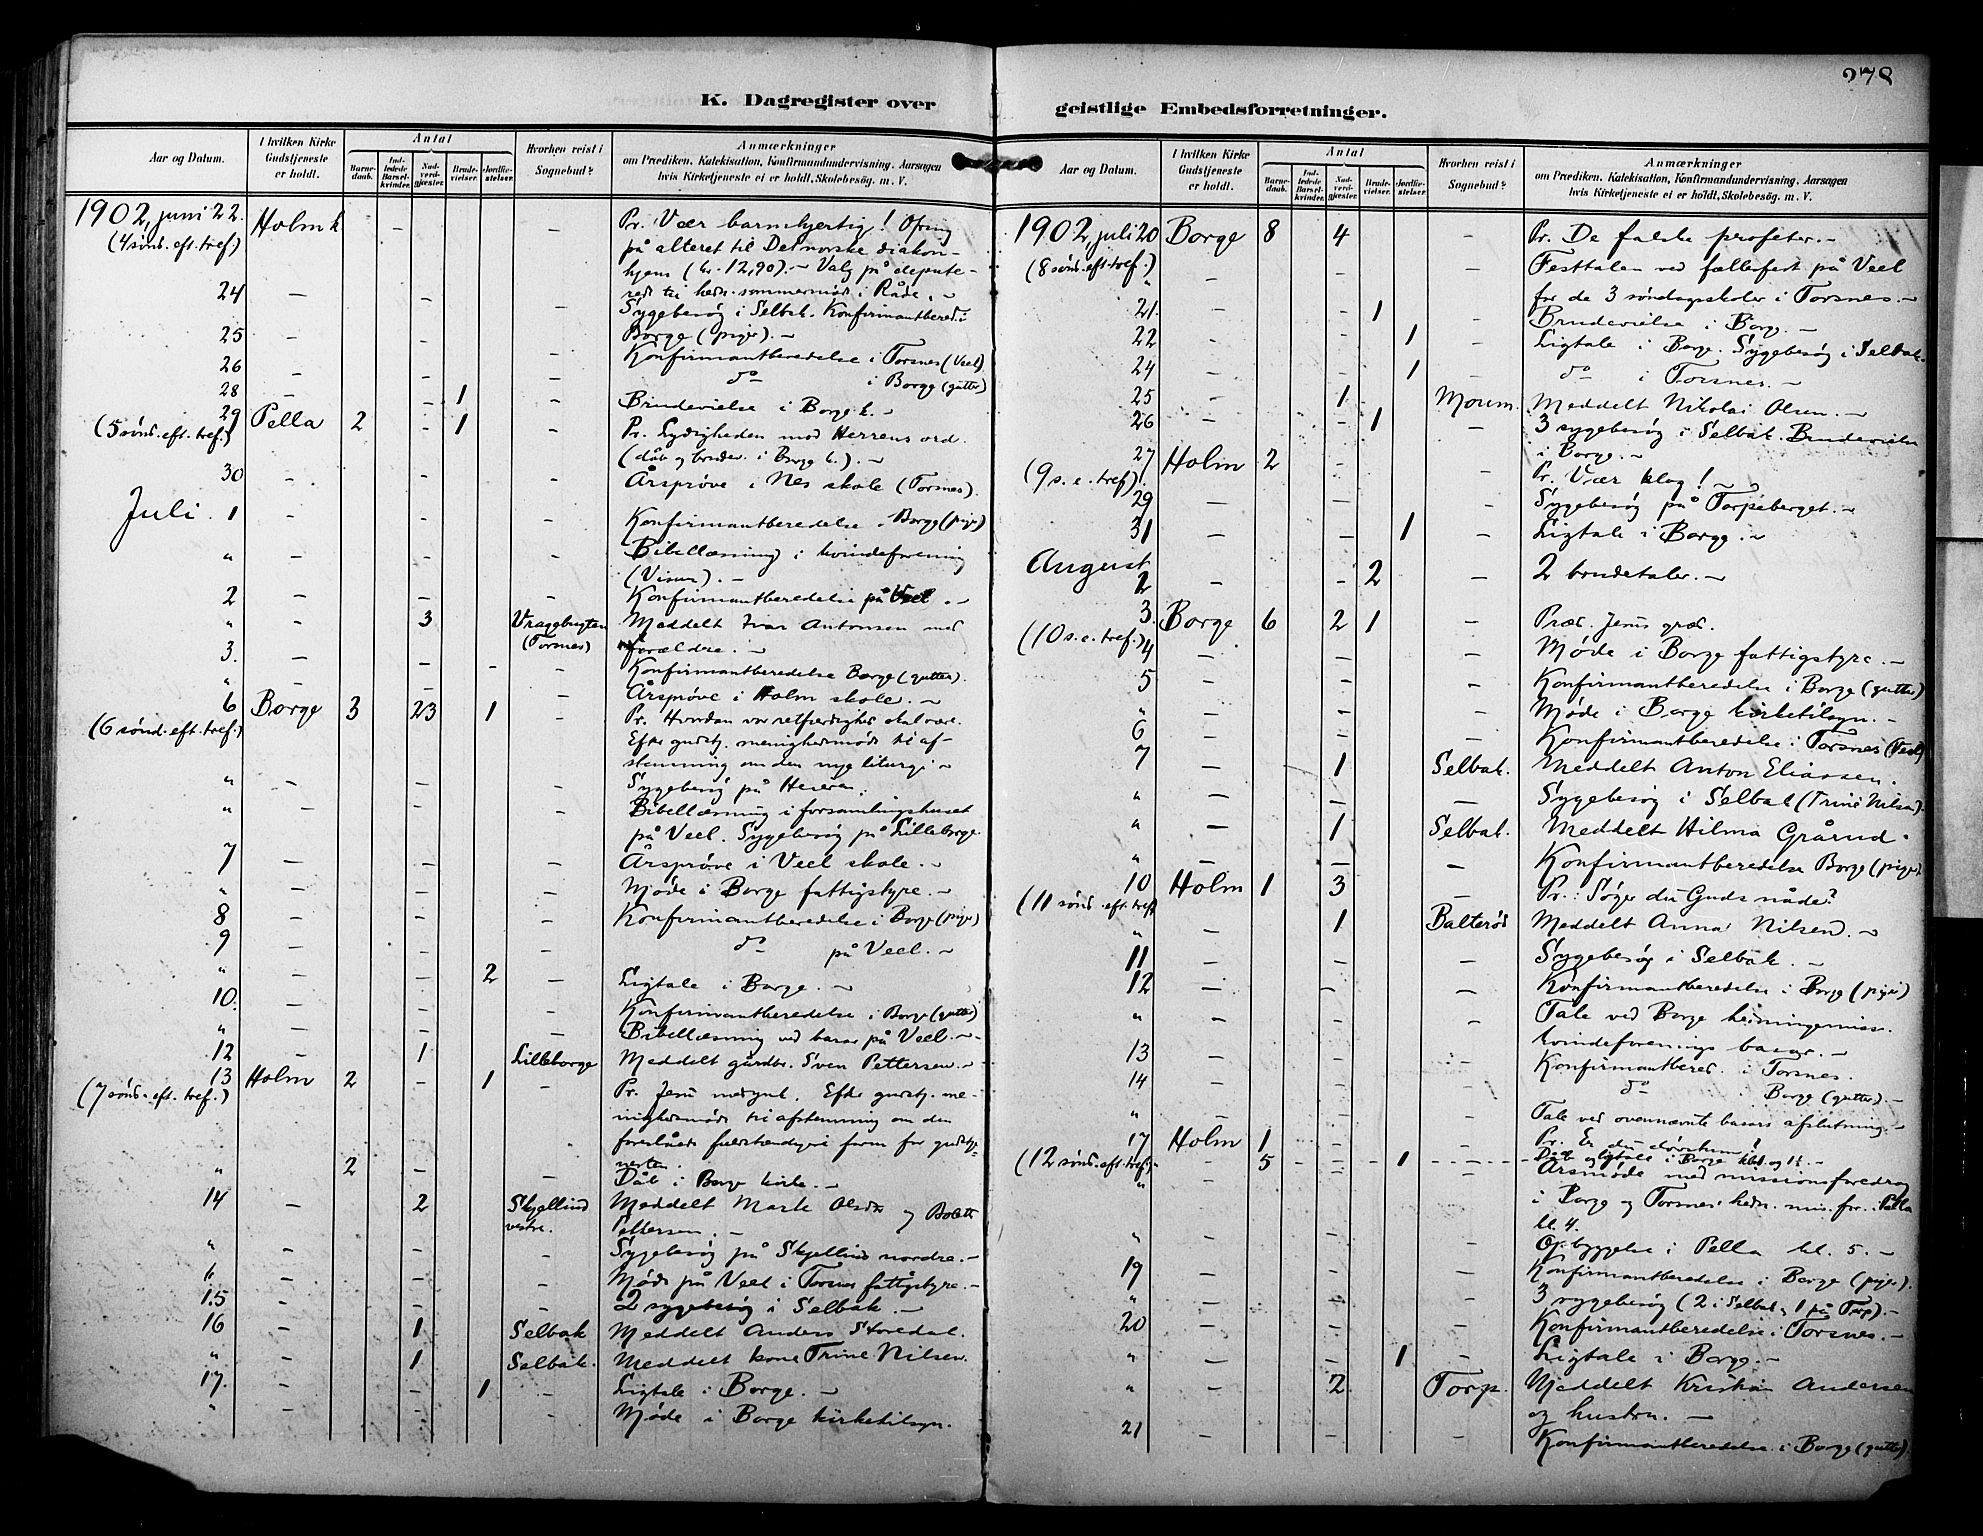 278
K. Dagregister over
Aar og Datum.
I hvilken Kirke Gudstjeneste er holdt.
Antal
Barne-daab.
Ind-ledede Barsel-kvinder.
Nad-verd-gjester.
Brude-vielser.
Jordfæ-stelser.
Hvorhen reist i Sognebud?
Anmærkninger
om Prædiken, Katekisation, Konfirmandundervisning, Aarsagen
hvis Kirketjeneste ei er holdt, Skolebesøg. m. V.
1902, juni 22. Holm k - - Pr. Vær barmhjertig! Ofring
(4 sønd. eft. tref.) på alteret til Det norske diakon-
hjem (kr. 12,90). - Valg på depute-
rede til hedn. sommermøde i Råde. -
24 - - - Sygebesøg i Selbak. Konfirmantbered. i
Borge (piger). -
25 - - - Konfirmantberedelse i Torsnes (Veel)
26 - - - do i Borge (gutter)
28 - - 1 - Brudevielse i Borge k. -
29 Pella 2 - 1 - Pr. Lydigheden mod Herrens ord.
(5 sønd. eft. tref.) (dåb og brudev. i Borge k.). -
30 - - - Årsprøve i Nes skole (Torsnes).
Juli. 1 - - - Konfirmantberedelse i Borge (piger)
" - - - Bibellæsning i kvindeforening
(Visur). -
2 - - - Konfirmantberedelse på Veel. -
" - 3 Vragebugten Meddelt Ivar Antonsen med
(Torsnes) forældre. -
3. - - - Konfirmantberedelse Borge (gutter).
" - - - Årsprøve i Holm skole. -
6 Borge 3 23 1 - Pr. Hvordan vor retfærdighed skal være.
(6 sønd. eft. tref.) Efter gudstj. menighedsmøde til af-
stemning om den nye liturgi -
" - - Sygebesøg på Heieren.
" - - Bibellæsning i forsamlingshuset
på Veel. Sygebesøg på Lilleborge.
7 - - - Årsprøve i Veel skole. -
" - - - Møde i Borge fattigstyre. -
8 - - - Konfirmantberedelse i Borge (piger)
9 - - - do på Veel. -
" - - 2 - Ligtale i Borge. -
10. - - - Konfirmantberedelse i Borge (gutter)
" - - - Bibellæsning ved basar på Veel. -
12 - 1 Lilleborge Meddelt gårdbr. Sven Pettersen. -
13 Holm 2 - 1 - Pr. Jesu medynk. Efter gudstj. me-
(7 sønd. eft. tref.) nighedsmøde til afstemning om den
foreslåede fuldstændigere form for gudstje-
nesten.
" 2 - Dåb i Borge kirke. -
14 - 2 Skjellind Meddelt Marte Olsdtr og Bolette
vestre. Pettersen. -
" - - - Sygebesøg på Skjellind nordre. -
" - - - Møde på Veel i Torsnes fattigstyre. -
15 - - - 2 sygebesøg i Selbak. -
16 - 1 Selbak Meddelt Anders Storedal.
" - 1 Selbak. Meddelt kone Trine Nilsen.
17. - - 1 - Ligtale i Borge. -
" - - - Møde i Borge kirketilsyn.
geistlige Embedsforretninger.
Aar og Datum.
I hvilken Kirke Gudstjeneste er holdt.
Antal
Barne-daab.
Ind-ledede Barsel-kvinder.
Nad-verd-gjester.
Brude-vielser.
Jordfæ-stelser.
Hvorhen reist i Sognebud?
Anmærkninger
om Prædiken, Katekisation, Konfirmandundervisning, Aarsagen
hvis Kirketjeneste ei er holdt, Skolebesøg. m. V.
1902, juli 20 Borge 8 4 - Pr. De falske profeter. -
(8 sønd. eft. tref.) - - - Festtalen ved fællesfest på Veel
" for de 3 søndagsskoler i Torsnes. -
21. - - 1 - Brudevielse i Borge. -
22 - - 1 - Ligtale i Borge. Sygebesøg i Selbak.
24 - - 1 - do i Torsnes. -
25 - 1 Moum. Meddelt Nikolai Olsen. -
26 - - 1 - 3 sygebesøg i Selbak. Brudevielse
i Borge. -
27 Holm 2 - - Pr. Vær klog! -
(9 s. e. tref.)
29 - - - Sygebesøg på Torpeberget. -
31 - - 1 - Ligtale i Borge. -
August
2 - - 2 - 2 brudetaler. -
3. Borge 6 2 1 - Præd. Jesus græd.
(10 s. e. tref.) 4 - - - Møde i Borge fattigstyre. -
5 - - - Konfirmantberedelse i Borge (gutter)
" - - - Møde i Borge kirketilsyn. -
6 - - - Konfirmantberedelse i Torsnes (Veel)
7 - 1 Selbak. Meddelt Anton Eliassen.
" - - - Sygebesøg i Selbak (Trine Nilsen).
" - 1 Selbak. Meddelt Hilma Grårud.
" - - - Konfirmantberedelse Borge (piger).
10 Holm 1 3 - Pr.: Søger du Guds nåde?
(11 sønd. eft. tref.
" - 1 Balterød Meddelt Anna Nilsen. -
11 - - - Sygebesøg i Selbak. -
12 - - - Konfirmantberedelse i Borge (piger)
" - - - Tale ved Borge hedningemiss.
kvindeforenings basar. -
13 - - - Konfirmantbered. i Torsnes.
14 - - - do Borge (gutter). -
" - - - Tale ved ovennævnte basars afslutning. -
17 Holm 1 - - Pr. Er du døvstum?
(12 sønd. eft. tref.) - 5 - - 1 - Dåb og ligtale i Borge
" - - - Årsmøde med missionsforedrag
i Borge og Torsnes hedn. mis. for. i Pella
kl. 4.
" - - - Opbyggelse i Pella kl. 5. -
19 - - - Konfirmantberedelse i Borge (piger).
" - - - 3 sygebesøg (2 i Selbak, 1 på Torp). -
20 - - - Konfirmantberedelse i Torsnes. -
" - - 1 - Ligtale i Borge. -
" - 2 Torp. Meddelt Kristian Andersen
og hustru. -
21 - - - Konfirmantberedelse i Borge (gutter).